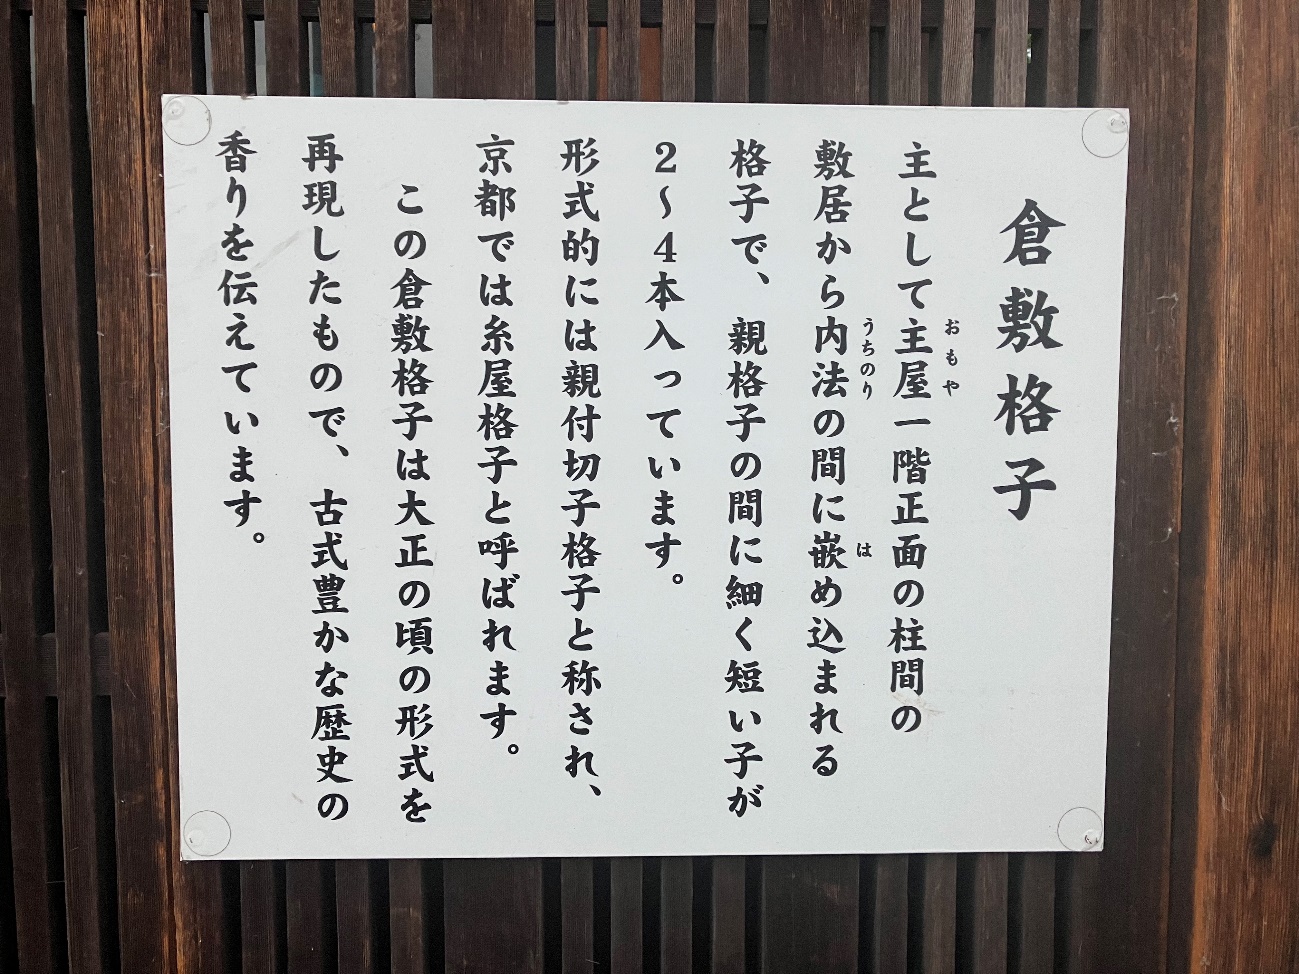 倉敷格子
主として主屋一階正面の柱間の
おもや
敷居から内法の間に嵌め込まれる
うちのり
は
格子で、親格子の間に細く短い子が
2～4本入っています。
形式的には親付切子格子と称され、
京都では糸屋格子と呼ばれます。
この倉敷格子は大正の頃の形式を
再現したもので、古式豊かな歴史の
香りを伝えています。